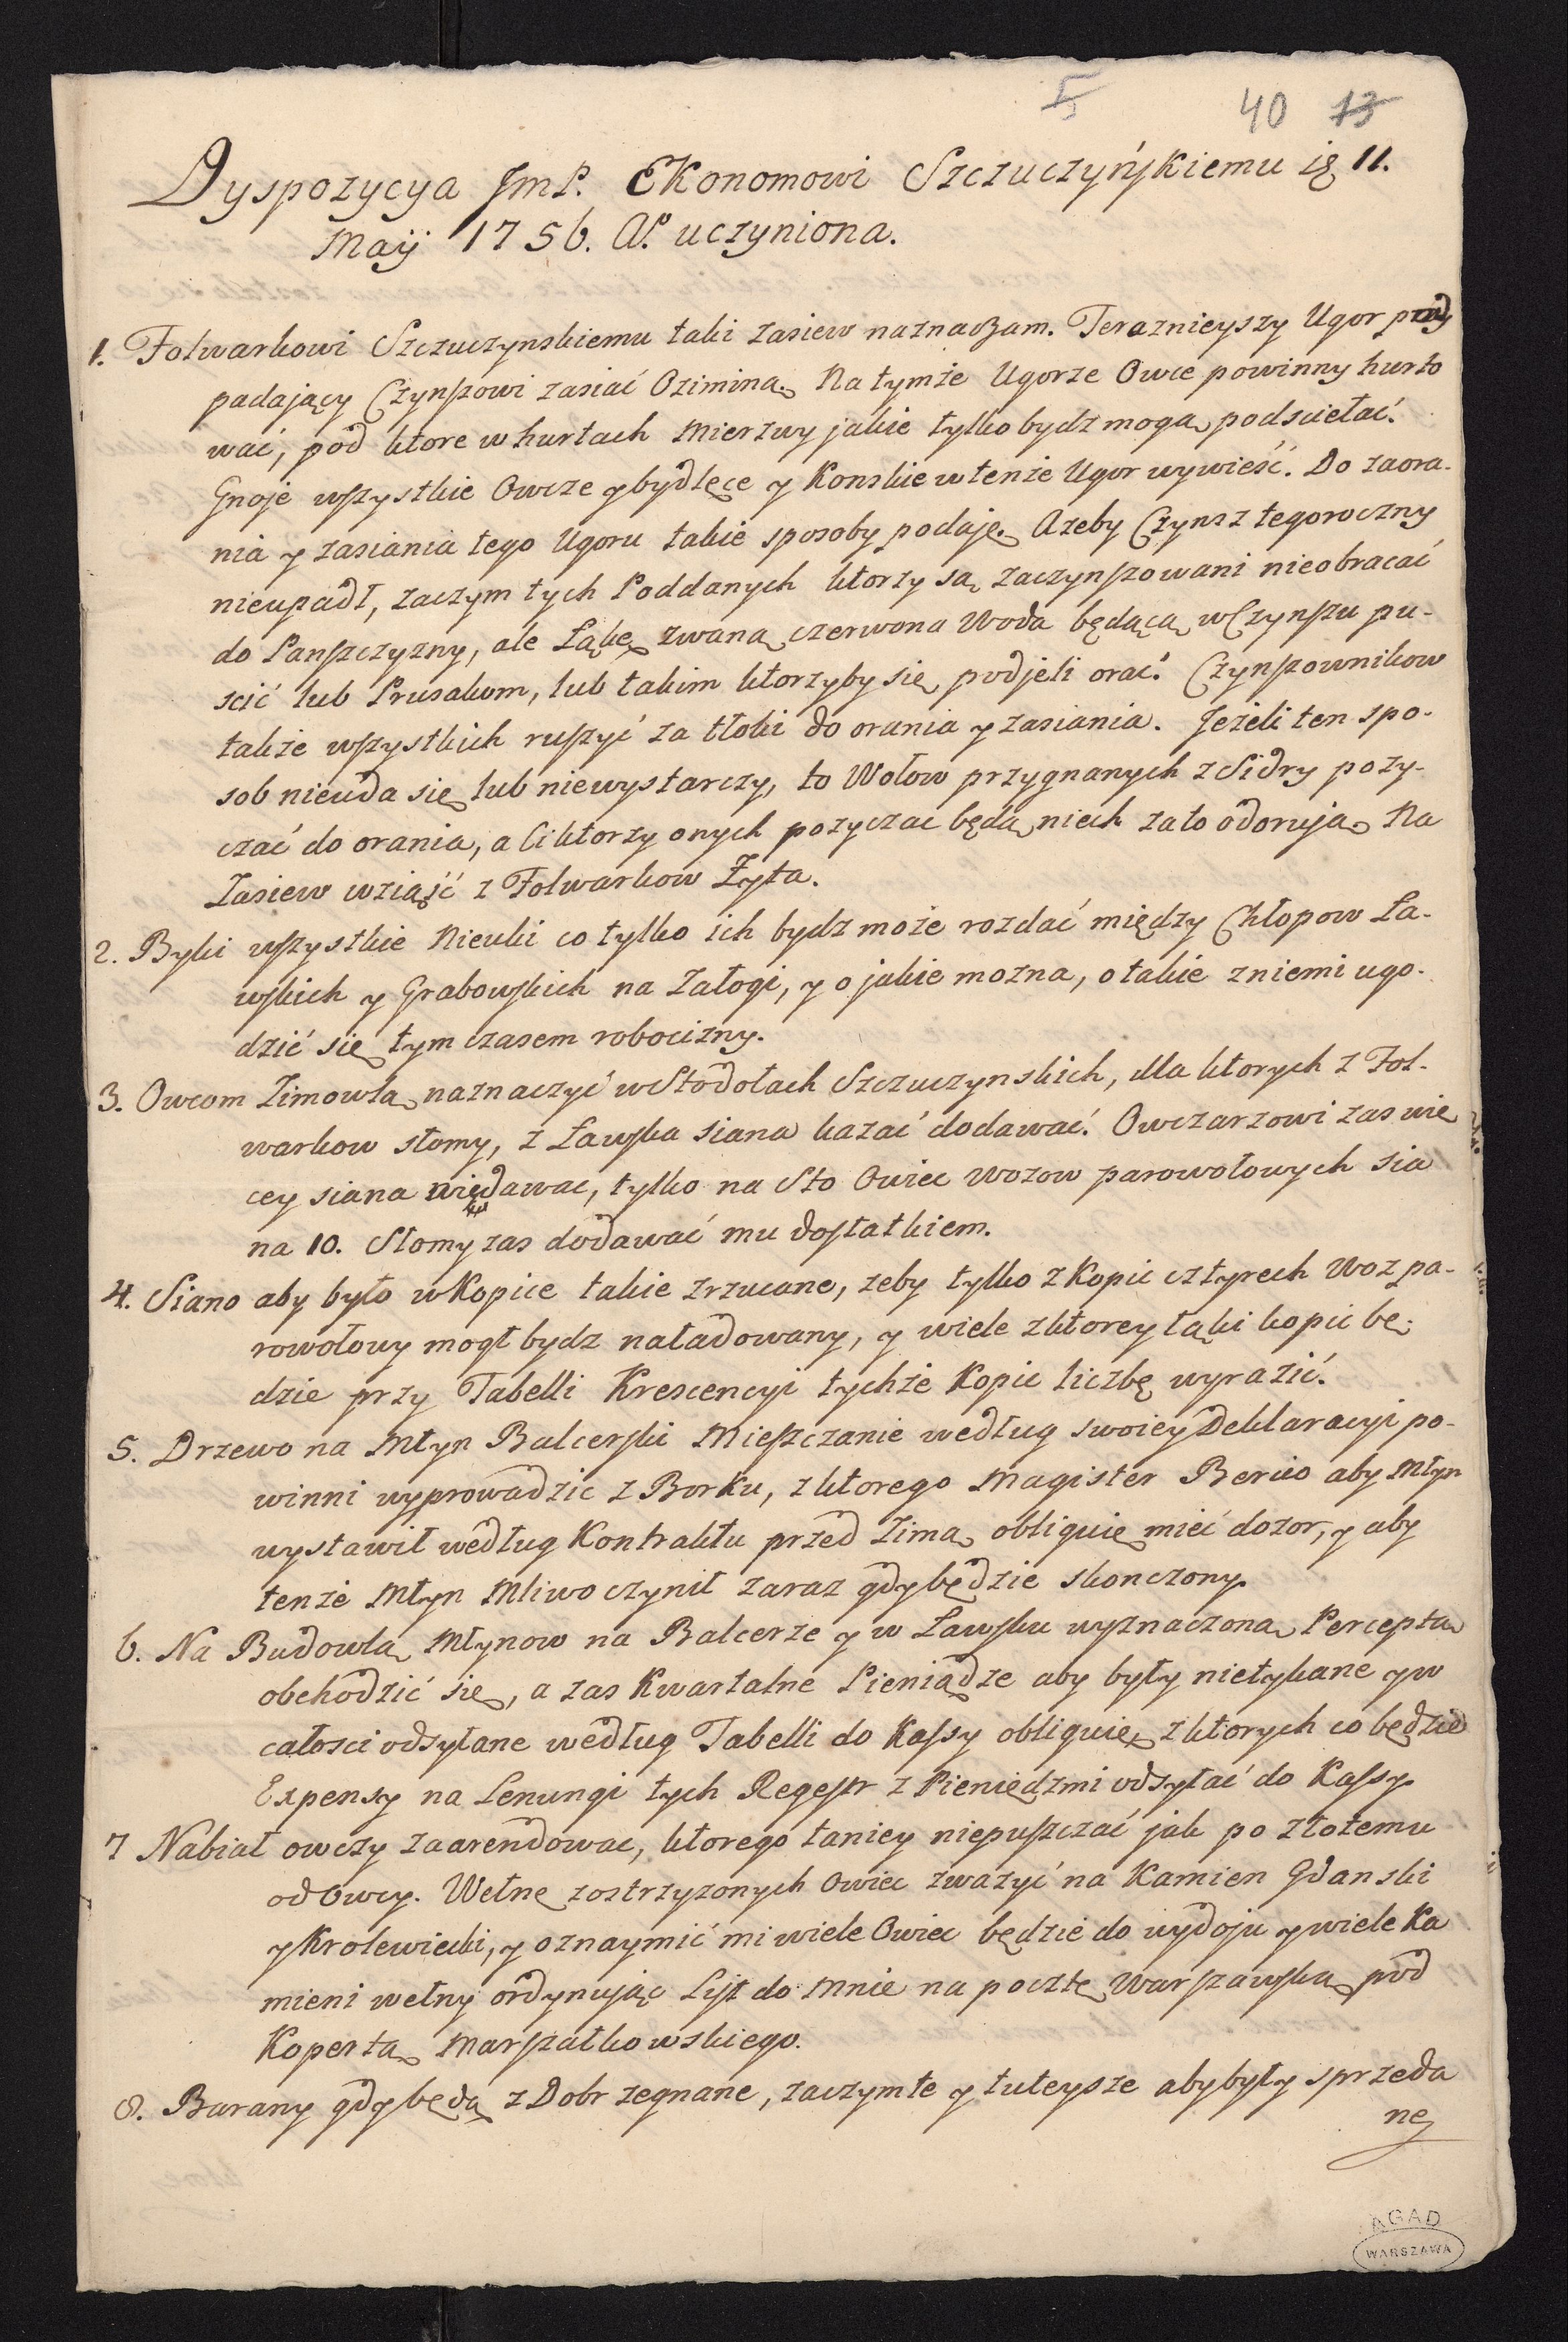 I 40 13
Dyspozycya JmP. Ekonomowi Szczuczyńskiemu ię 11.
Maÿ 1756. Ao. uczyniona.
1. Folwarkowi Szczuczynskiemu taki zasiew naznaczam. Teraznieyszy Ugor
padaiący Czynszowi zasiać Oziminą. Na tymże Ugorze Owce powinny hurto
wać, pod ktore w hurtach Mierzwy jakie tylko bydz mogą podsciełać.
Gnoje wszystkie Owcze y bydlęce y Konskie w tenże Ugor wywieść. Do zaora-
nia y zasiania tego Ugoru takie sposoby podaję. Azeby Czynsz tegoroczny
nieupadł, zaczym tych Poddanych ktorzy są zaczynszowani nieobracać
do Panszczyzny, ale Łąkę zwaną czerwona Woda będącą w Czynszu pu-
scić lub Prusakom, lub takim ktorzyby się podjeli orać. Czynszownikow
także wszystkich ruszyć za tłoki do orania y zasiania. Jeżeli ten spo-
sob nieuda się lub niewystarczy, to Wołow przygnanych z Sidry pozy-
czać do orania, a Ci ktorzy onych pozyczac będą niech zato odorują. Na
Zasiew wziąść z Folwarkow Żyta.
2. Byki wszystkie Nieuki co tylko ich bydz może rozdać między Chłopow Ła-
wskich y Grabowskich na Załogi, y o jakie mozna, o takie z niemi ugo-
dzić się tym czasem robocizny.
3. Owcom Zimowlą naznaczyć w Stodołach Szczuczynskich, dla ktorych z Fol-
warkow słomy, z Ławska siana kazać dodawać. Owczarzowi zas wię
cey siana niedawac, tylko na Sto Owiec wozow parowołowych sia
na 10. Słomy zas dodawać mu dostatkiem.
4. Siano aby było w Kopice takie zrzucane, zeby tylko z Kopic cztyrech Woz pa-
rowołowy mogł bydz naładowany, y wiele z ktorey łąki kopic bę-
dzie przy Tabelli Krescencyi tychże Kopic liczbę wyrazić.
5. Drzewo na Młyn Balcerski Mieszczanie według swoiey Deklaracyi po-
winni wyprowadzic z Borku, z ktorego Magister Berwo aby Młyn
wystawił według Kontraktu przed Zimą obliguię mieć dozor, y aby
tenże Młyn Mliwo czynił zaraz gdy będzie skonczony.
6. Na Budowlą Młynow na Balcerze y w Ławsku wyznaczoną Perceptą
obchodzić się, a zas Kwartalne Pieniądze aby były nietykane y w
całosci odsyłane według Tabelli do Kassy obliguię, z ktorych co będzie
Expensy na Lenungi tych Regestr z Pieniędzmi odsyłać do Kassy.
7 Nabiał owczy zaarendowac, ktorego taniey niepuszczać jak po złotemu
od Owcy. Wełnę zostrzyzonych Owiec zwazyć na Kamien Gdanski
y Krolewiecki, y oznaymić mi wiele Owiec będzie do wydoju y wiele Ka
mieni wełny ordynując List do Mnie na pocztę Warszawską pod
Kopertą Marszałkowskiego.
8. Barany gdy będą z Dobr zegnane, zaczym te y tuteysze aby były sprzeda
ne
AGAD
WARSZAWA